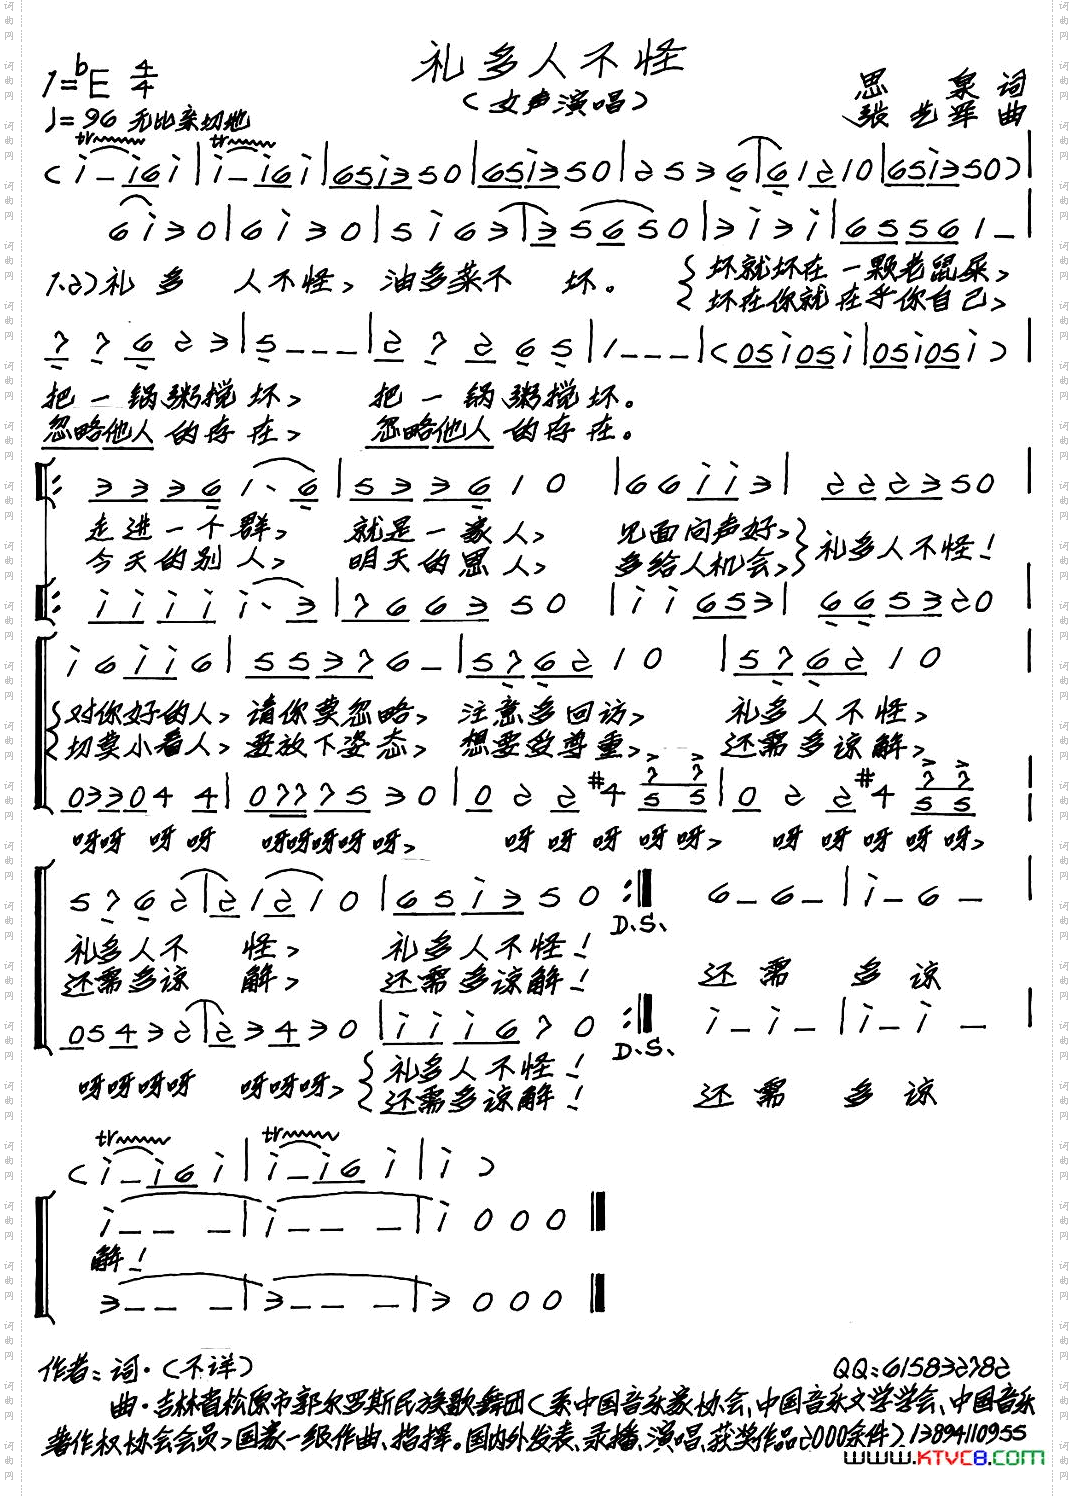 礼多人不怪
1=bE 4/4
(女声演唱)
思泉 词
♩=96 无比亲切地
张艺军 曲
tr tr
(i-i6i|i-i6i|65i350|65i350|2536|61210|65i350)|
6i30|6i30|5i63|35650|3i3i|65561-|
1.2)礼多人不怪,油多菜不坏。{坏就坏在一颗老鼠屎,
坏在你就在乎你自己,
77623|5---|27265|1---|(05i05i|05i05i)|
把一锅粥搅坏,把一锅粥搅坏。
忽略他人的存在,忽略他人的存在。
33361·6|533610|66ii3|222350|
走进一个群,就是一家人,见面问声好,}礼多人不怪!
今天的别人,明天的恩人,多给人机会,
iiiii·3|766350|ii653|665320|
i6ii6|55376-|576210|576210|
{对你好的人,请你莫忽略,注意多回访,礼多人不怪,
切莫小看人,要放下姿态,想要效尊重,还需多谅解,
033044|0777530|022#4 7 7 5 5|022#4 7 7 5 5|
呀呀呀呀 呀呀呀呀呀,呀呀呀呀呀,呀呀呀呀呀,
5762|21210|65i350:| 6-6-|i-6-|
D.S.
礼多人不怪,礼多人不怪!
还需多谅解,还需多谅解! 还需多谅
05432|23430|iii670:| i-i-|i-i-|
D.S.
呀呀呀呀 呀呀呀,{礼多人不怪!
还需多谅解! 还需多谅
tr tr
(i-i6i|i-i6i|i)
i---|i---|i000
解!
3---|3---|3000
作者:词·(不详) QQ:615832782
曲·吉林省松原市郭尔罗斯民族歌舞团(系中国音乐家协会、中国音乐文学学会、中国音乐
著作权协会会员,国家一级作曲、指挥。国内外发表、录播、演唱、获奖作品2000余件)13894110955
www.KTVC8.com